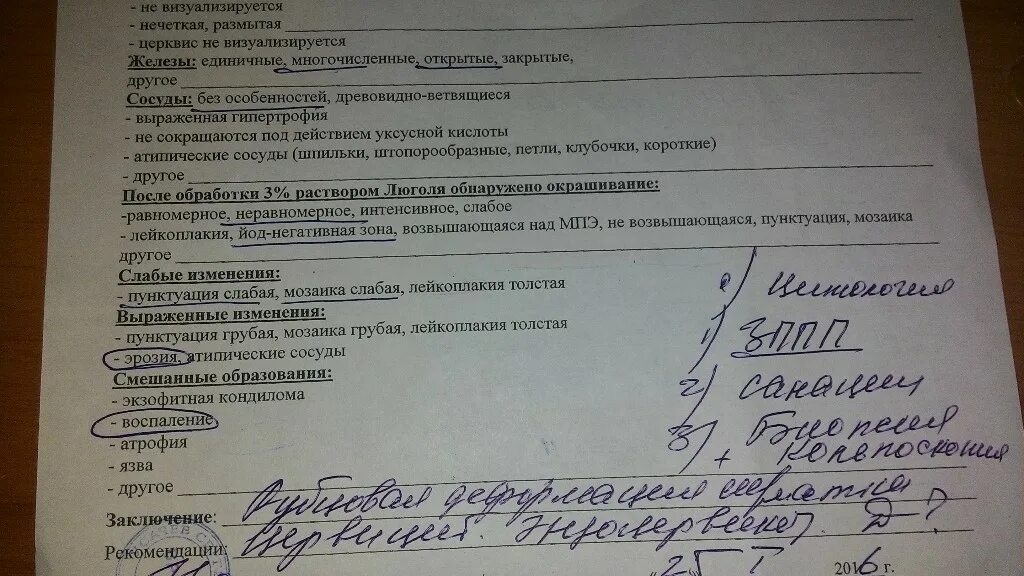 - не визуализируется
- нечеткая, размытая
- церквис не визуализируется
Железы: единичные, многочисленные, открытые, закрытые,
другое
Сосуды: без особенностей, древовидно-ветвящиеся
- выраженная гипертрофия
- не сокращаются под действием уксусной кислоты
- атипические сосуды (шпильки, штопорообразные, петли, клубочки, короткие)
- другое
После обработки 3% раствором Люголя обнаружено окрашивание:
-равномерное, неравномерное, интенсивное, слабое
- лейкоплакия, йод-негативная зона, возвышающаяся над МПЭ, не возвышающаяся, пунктуация, мозаика
другое
Слабые изменения:
- пунктуация слабая, мозаика слабая, лейкоплакия толстая
Выраженные изменения:
- пунктуация грубая, мозаика грубая, лейкоплакия толстая
- эрозия, атипические сосуды
Смешанные образования:
- экзофитная кондилома
- воспаление
- атрофия
- язва
- другое
0) Цитология
1) ЗППП
2) санации
3) Биопсия
+ кольпоскопия
Заключение: Рубцовая деформация ш/матки
Рекомендации: Цервицит. Эндоцервикоз. Д?
"25" I 2016 г.